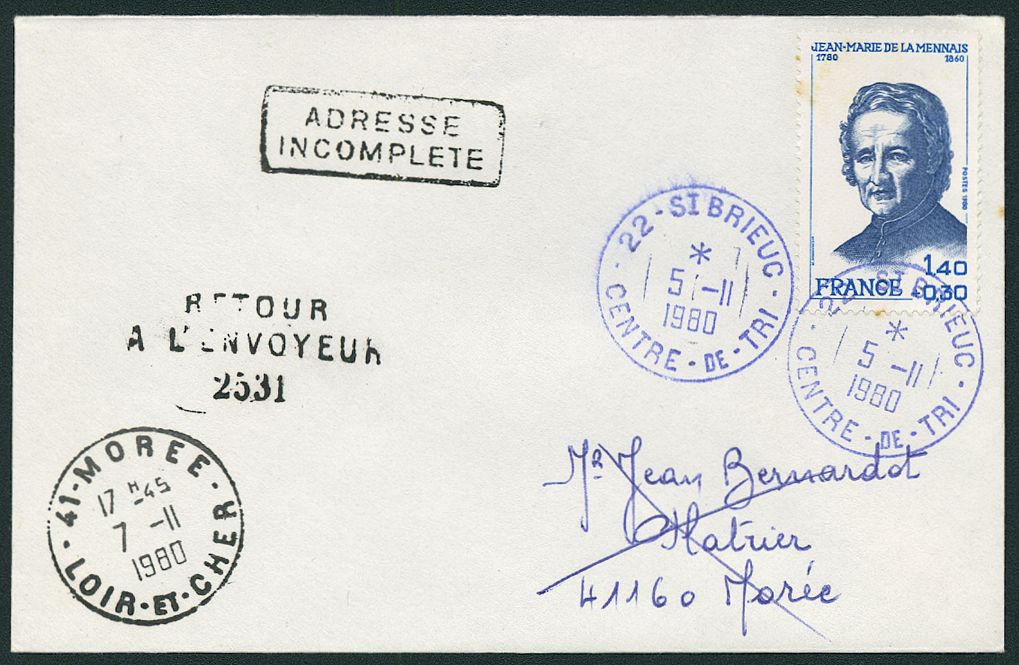 JEAN-MARIE DE LA MENNAIS
1780 1860
POSTES 1980
1,40
FRANCE +0,30
ADRESSE
INCOMPLETE
22-ST BRIEUC
*
5 -11
1980
CENTRE-DE-TRI
22-ST BRIEUC
*
5 -11
1980
CENTRE-DE-TRI
RETOUR
A L'ENVOYEUR
2531
41-MOREE
17 H 45
7 -11
1980
LOIR-ET-CHER
Mr Jean Bernardot
41160 Morée